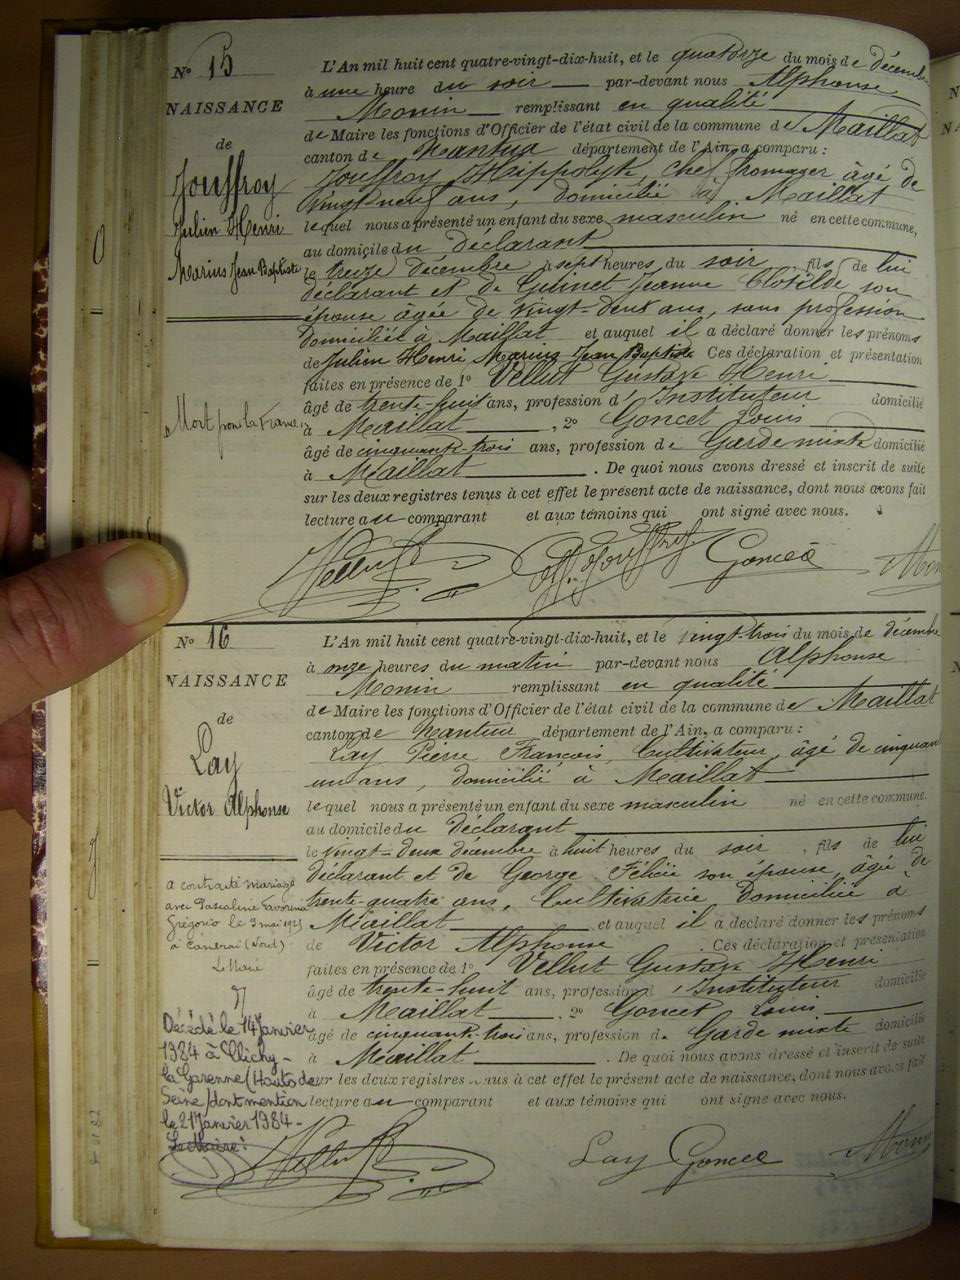 N° 15
NAISSANCE
de
Jouffroy
Julien Henri
Marius Jean Baptiste
Mort pour la France
L'An mil huit cent quatre-vingt-dix-huit, et le quatorze du mois de décembre
à une heure du soir par-devant nous Alphonse
Monin remplissant en qualité
de Maire les fonctions d'Officier de l'état civil de la commune de Maillat
canton de Nantua département de l'Ain, a comparu :
Jouffroy Hippolyte, chef fromager âgé de
vingt neuf ans, domicilié à Maillat
lequel nous a présenté un enfant du sexe masculin né en cette commune,
au domicile du déclarant
le treize décembre à sept heures du soir, fils de lui
déclarant et de Jeanne Clotilde son
épouse âgée de vingt-deux ans, sans profession
domiciliée à Maillat et auquel il a déclaré donner les prénoms
de Julien Henri Marius Jean Baptiste Ces déclaration et présentation
faites en présence de 1° Vellut Gustave Henri
âgé de trente-huit ans, profession d'Instituteur domicilié
à Maillat, 2° Goncet Louis
âgé de cinquante-trois ans, profession de Garde mixte domicilié
à Maillat. De quoi nous avons dressé et inscrit de suite
sur les deux registres tenus à cet effet le présent acte de naissance, dont nous avons fait
lecture au comparant et aux témoins qui ont signé avec nous.
Vellut H. Jouffroy Goncet Monin
N° 16
NAISSANCE
de
Lay
Victor Alphonse
a contracté mariage
avec Pascaline
Grégorio le 9 mai 1925
à Cambrai (Nord)
Le Maire
Décédé le 14 Janvier
1984 à Clichy-
la Garenne (Hauts de
Seine) dont mention
le 21 Janvier 1984-
Le Maire:
L'An mil huit cent quatre-vingt-dix-huit, et le vingt-trois du mois de décembre
à onze heures du matin par-devant nous Alphonse
Monin remplissant en qualité
de Maire les fonctions d'Officier de l'état civil de la commune de Maillat
canton de Nantua département de l'Ain, a comparu :
Lay Pierre François, Cultivateur, âgé de cinquante
un ans, domicilié à Maillat
lequel nous a présenté un enfant du sexe masculin né en cette commune.
au domicile du déclarant
le vingt-deux décembre à huit heures du soir, fils de lui
déclarant et de George Félicie son épouse, âgé de
trente-quatre ans, Cultivatrice Domiciliée à
Maillat et auquel il a déclaré donner les prénoms
de Victor Alphonse. Ces déclaration et présentation
faites en présence de 1° Vellut Gustave Henri
âgé de trente-huit ans, profession d'Instituteur domicilié
à Maillat. 2° Goncet Louis
âgé de cinquante-trois ans, profession de Garde mixte domicilié
à Maillat. De quoi nous avons dressé et inscrit de suite
sur les deux registres tenus à cet effet le présent acte de naissance, dont nous avons fait
lecture au comparant et aux témoins qui ont signé avec nous.
Vellut Lay Goncet Monin